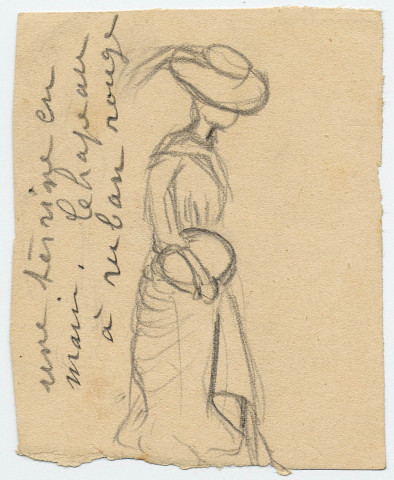 une terrine en
main. Chapeau
à ruban rouge